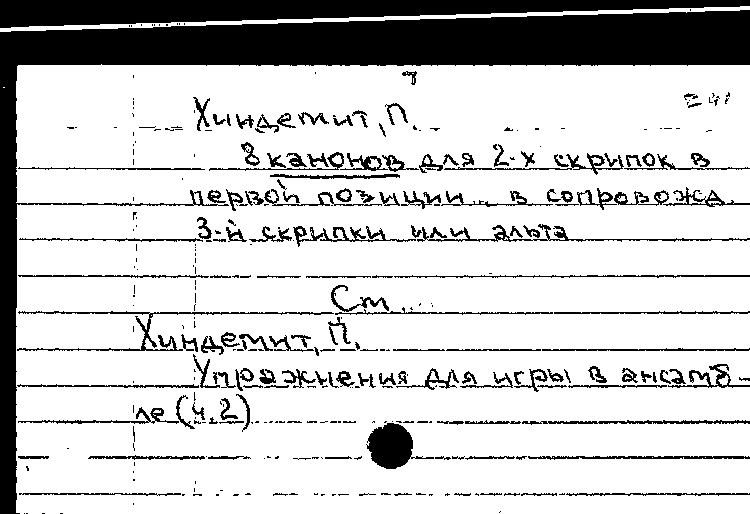 Хиндемит, П.
8 канонов для 2-х скрипок в
первой позиции в сопровожд.
3-й скрипки или альта
См...
Хиндемит, П.
Упражнения для игры в ансамб-
ле (ч. 2)